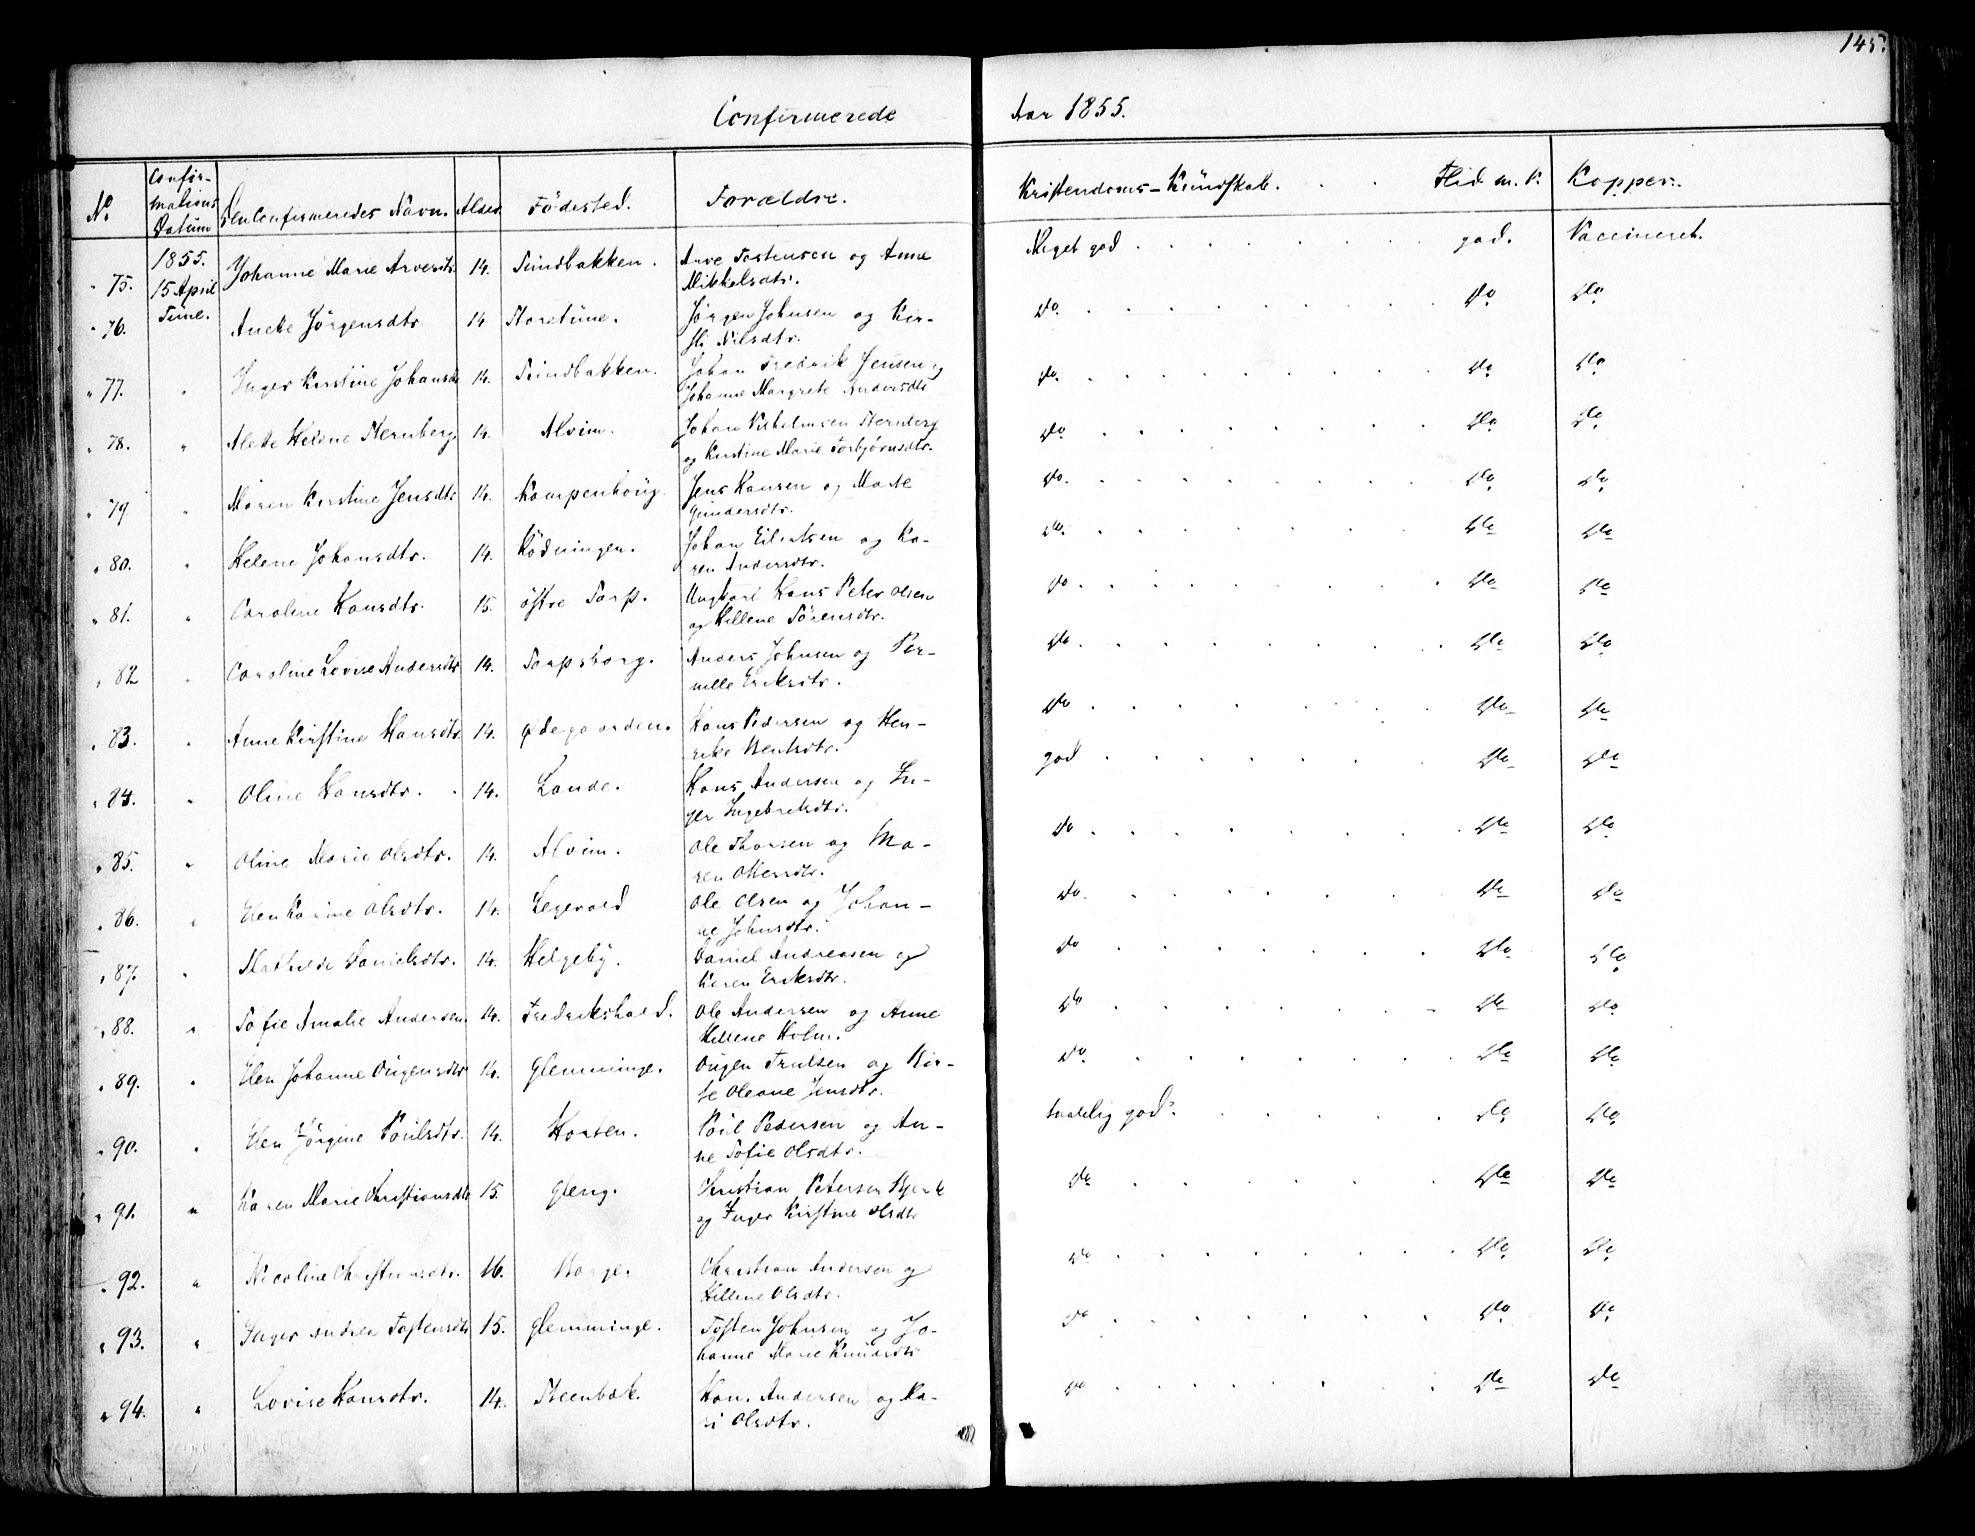 145.
Confirmerede Aar 1855.
No Confir- Den Confirmeredes Navn. Alder Födested. Forældre. Kristendoms-Kündskab. Flid m. v. Kopper.
mations
Datum
1855. Meget god god. Vaccineret.
75. 15 April Johanne Marie Arvesdtr. 14. Sundbakken. Arve Tostensen og Anne
Mikkelsdtr.
76. Tune. Anete Jörgensdtr 14 Storetune. Jörgen Johnsen og Kir- Do. Do Do
sti Nilsdtr.
77. " Inger Kirstine Johansdtr 14. Sundbakken. Johan Fredrik Jensen og Do. Do Do
Johanne Margrete Andersdtr
78. " Alette Helene Sternberg 14. Alvim. Johan Vilhelmsen Sternberg Do Do Do
og Kirstine Marie Torbjörnsdtr.
79 " Maren Kirstine Jensdtr 14. Kampenhoug. Jens Hansen og Marte Do. Do Do
Gundersdtr.
80. " Helene Johansdtr. 14. Ködningen. Johan Eilertsen og Ka- Do. Do Do
ren Andersdtr.
81. " Caroline Hansdtr. 15. östre Torp. Ungkarl Hans Peter Olsen Do Do Do
og Hellene Sörensdtr.
82 " Caroline Lovise Andersdtr 14. Torpsborg. Anders Johnsen og Per- Do Do Do
nille Eriksdtr.
83. " Anne Kirstine Hansdtr 14. Ødegaarden. Hans Pedersen og Hen- Do Do Do
rike Bentsdtr.
84. " Oline Hansdtr. 14. Lande. Hans Andersen og In- god Do Do
ger Ingebretsdtr.
85. " Oline Marie Olsdtr. 14. Alvim. Ole Thorsen og Ma- Do Do Do
ren Ottersdtr.
86. " Elen Karine Olsdtr. 14. Legevold Ole Olsen og Johan- Do. Do Do
ne Johnsdtr.
87. " Mathilde Danielsdtr. 14. Helgeby. Daniel Andreasen og Do Do Do
Karen Eriksdtr.
88. " Sofie Amalie Andersen. 14. Fredrikshald. Ole Andersen og Anne Do Do Do
Hellene Holm.
89. " Elen Johanne Ougensdtr 14. Glemminge. Ougen Trulsen og Bir- Do Do Do
te Oleane Jensdtr.
90. " Elen Jörgine Poulsdtr. 14. Horten. Poul Pedersen og An- taalelig god. Do Do
ne Sofie Olsdtr.
91. " Karen Marie Christiansdtr 15. Gleng. Christian Petersen Bjerk Do Do Do
og Inger Kirstine Olsdtr
92. " Nicoline Christiansdtr. 16. Borge. Christian Andersen og Do Do Do
Hellene Olsdtr.
93. " Inger Andrea Tostensdtr 15. Glemminge. Tosten Johnsen og Jo- Do Do Do
hanne Marie Knudsdtr
94. " Lovise Hansdtr. 14. Steenbæk. Hans Andersen og Ka- Do Do Do
ri Olsdtr.